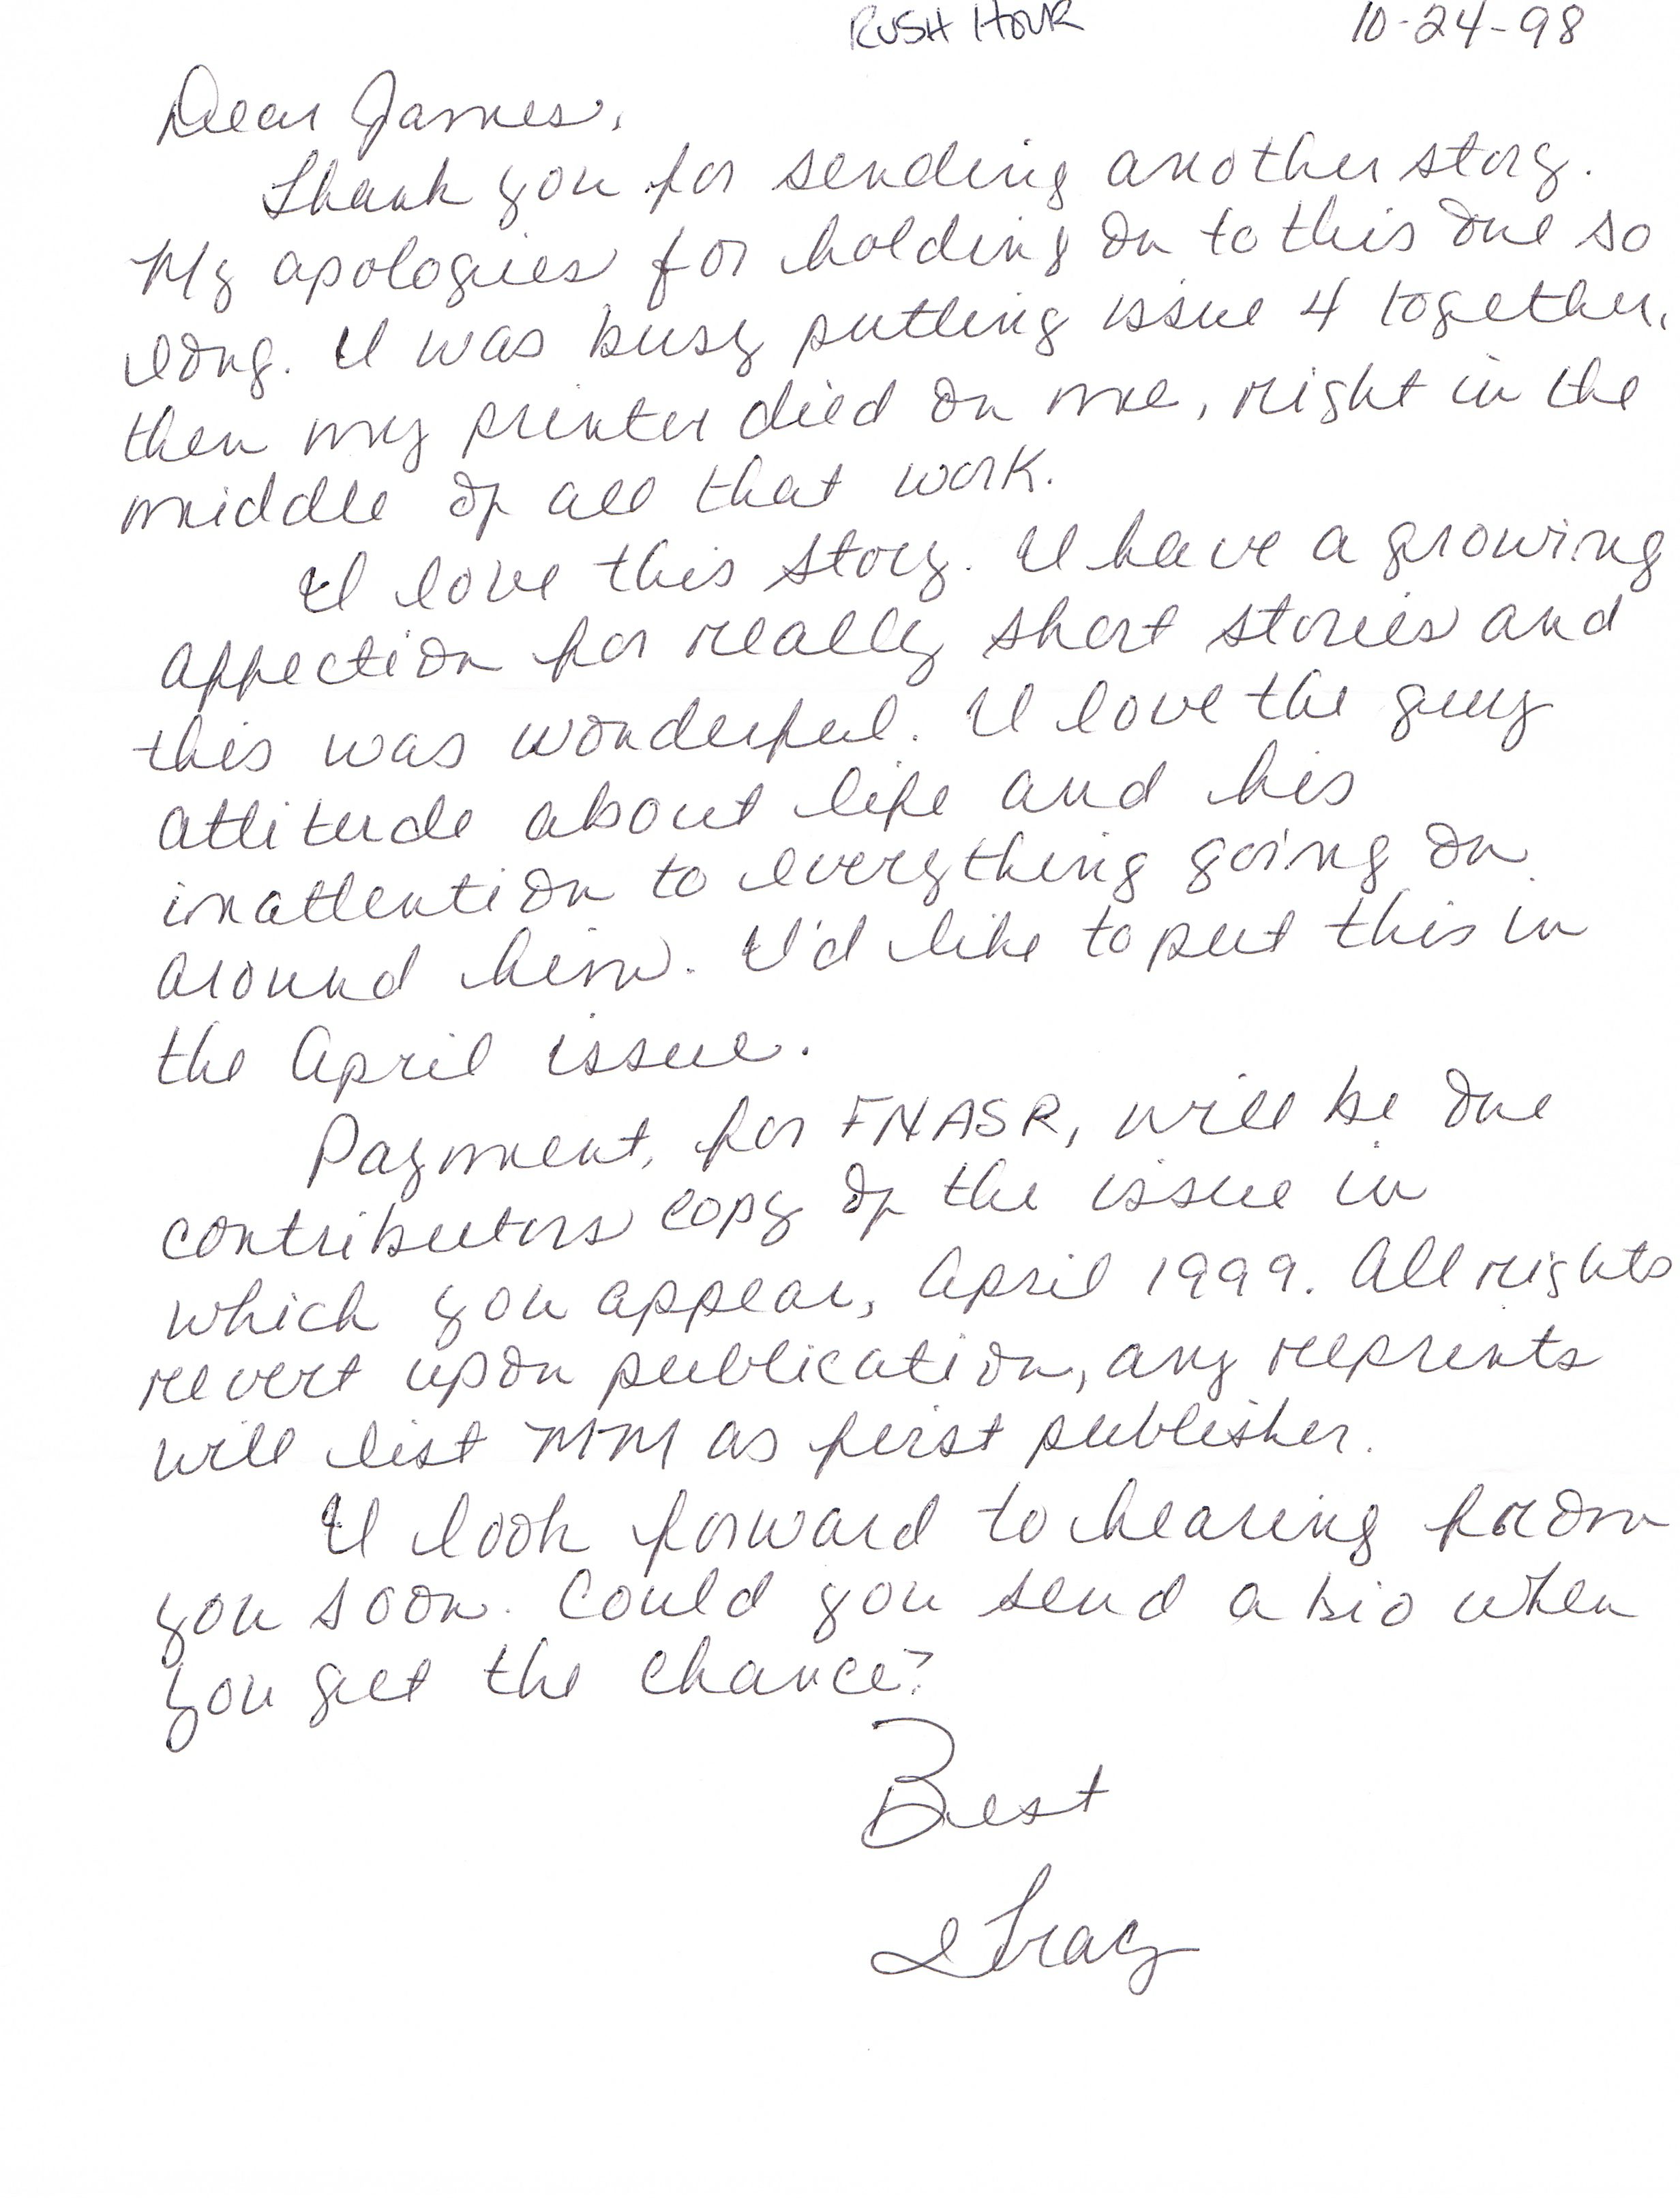 RUSH HOUR 10-24-98
Dear James,
Thank you for sending another story.
My apologies for holding on to this one so
long. I was busy putting issue 4 together,
then my printer died on me, right in the
middle of all that work.
I love this story. I have a growing
affection for really short stories and
this was wonderful. I love the guy
attitude about life and his
inattention to everything going on
around him. I'd like to put this in
the April issue.
Payment, for FNASR, will be one
contributors copy of the issue in
which you appear, April 1999. All rights
revert upon publication, any reprints
will list MM as first publisher.
I look forward to hearing from
you soon. Could you send a bio when
you get the chance?
Best
Tracy